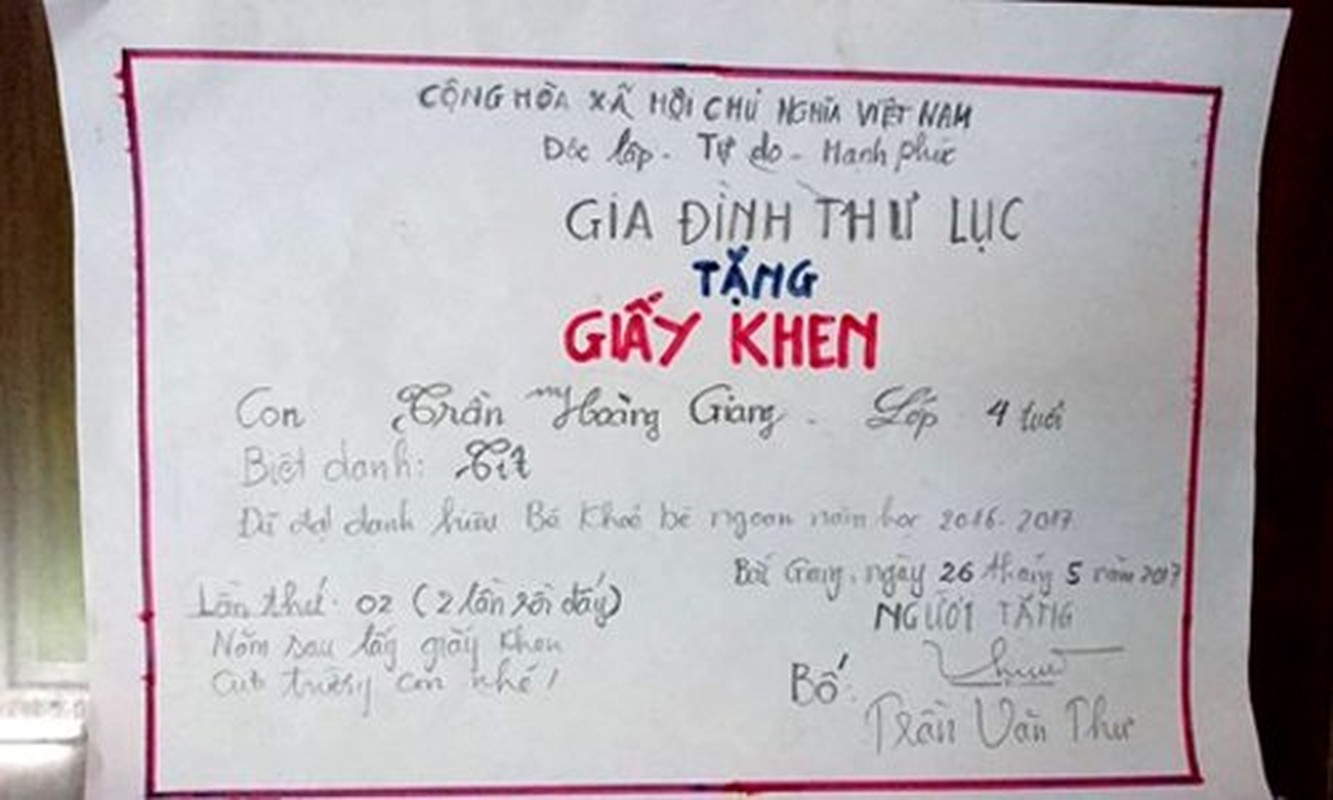 CỘNG HÒA XÃ HỘI CHỦ NGHĨA VIỆT NAM
Độc lập - Tự do - Hạnh phúc
GIA ĐÌNH THƯ LỤC
TẶNG
GIẤY KHEN
Con Trần Hoàng Giang - Lớp 4 tuổi
Biệt danh: Tít
Đã đạt danh hiệu Bé khoẻ bé ngoan năm học 2016-2017
Bắc Giang, ngày 26 tháng 5 năm 2017
Lần thứ: 02 (2 lần rồi đấy)
NGƯỜI TẶNG
Năm sau lấy giấy khen
của trường con nhé!
Bố:
Trần Văn Thư